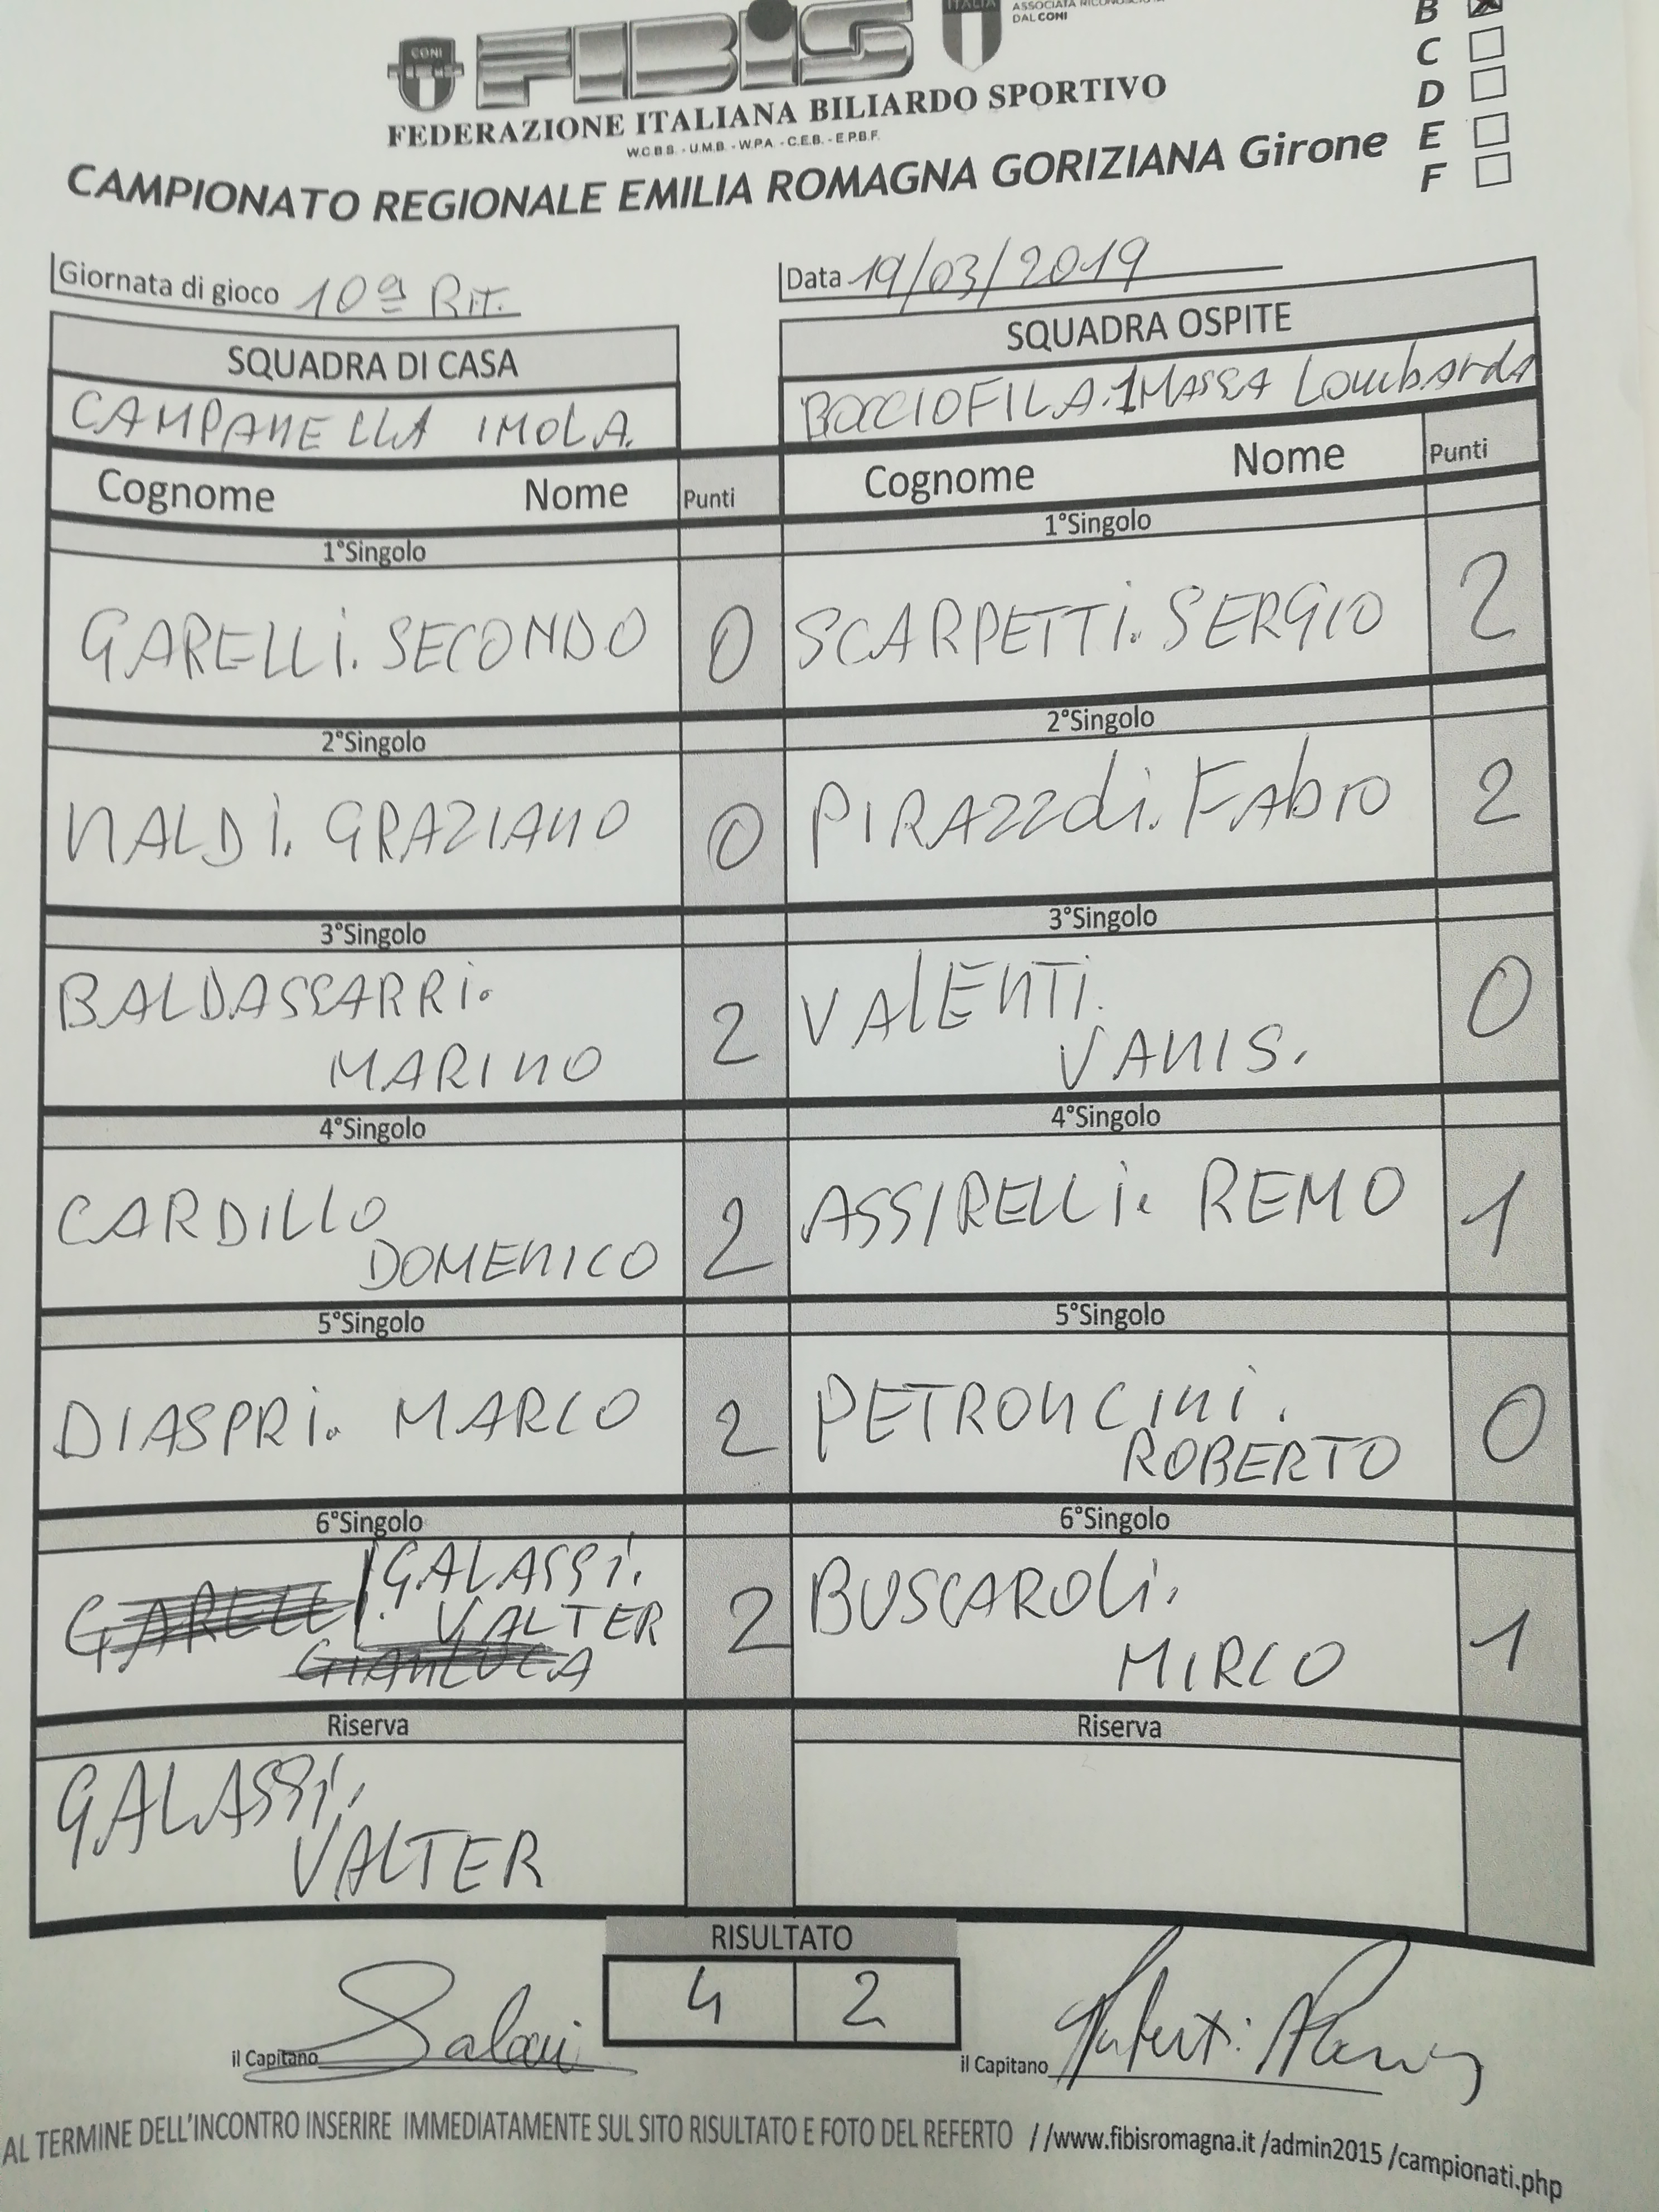 CONI
FIBIS
ITALIA
ASSOCIATA
DAL CONI
FEDERAZIONE ITALIANA BILIARDO SPORTIVO
W.C.B.S. - U.M.B. - W.P.A. - C.E.B. - E.P.B.F.
CAMPIONATO REGIONALE EMILIA ROMAGNA GORIZIANA Girone
B
C
D
E
F
Giornata di gioco 10ª RIT.
Data 19/03/2019
SQUADRA DI CASA
SQUADRA OSPITE
CAMPANELLA IMOLA.
BOCCIOFILA.1MASSA Lombarda
Cognome Nome Punti
Cognome Nome Punti
1°Singolo
1°Singolo
GARELLI. SECONDO 0
SCARPETTI. SERGIO 2
2°Singolo
2°Singolo
NALDI. GRAZIANO 0
PIRAZZOLI. FABIO 2
3°Singolo
3°Singolo
BALDASSARRI.
MARINO 2
VALENTI.
VANIS. 0
4°Singolo
4°Singolo
CARDILLO
DOMENICO 2
ASSIRELLI. REMO 1
5°Singolo
5°Singolo
DIASPRI. MARCO 2
PETRONCINI.
ROBERTO 0
6°Singolo
6°Singolo
GARELLI. GALASSI.
VALTER
GIANLUCA 2
BUSCAROLI.
MIRCO 1
Riserva
Riserva
GALASSI.
VALTER
RISULTATO
4 2
il Capitano
il Capitano
AL TERMINE DELL'INCONTRO INSERIRE IMMEDIATAMENTE SUL SITO RISULTATO E FOTO DEL REFERTO //www.fibisromagna.it /admin2015 /campionati.php